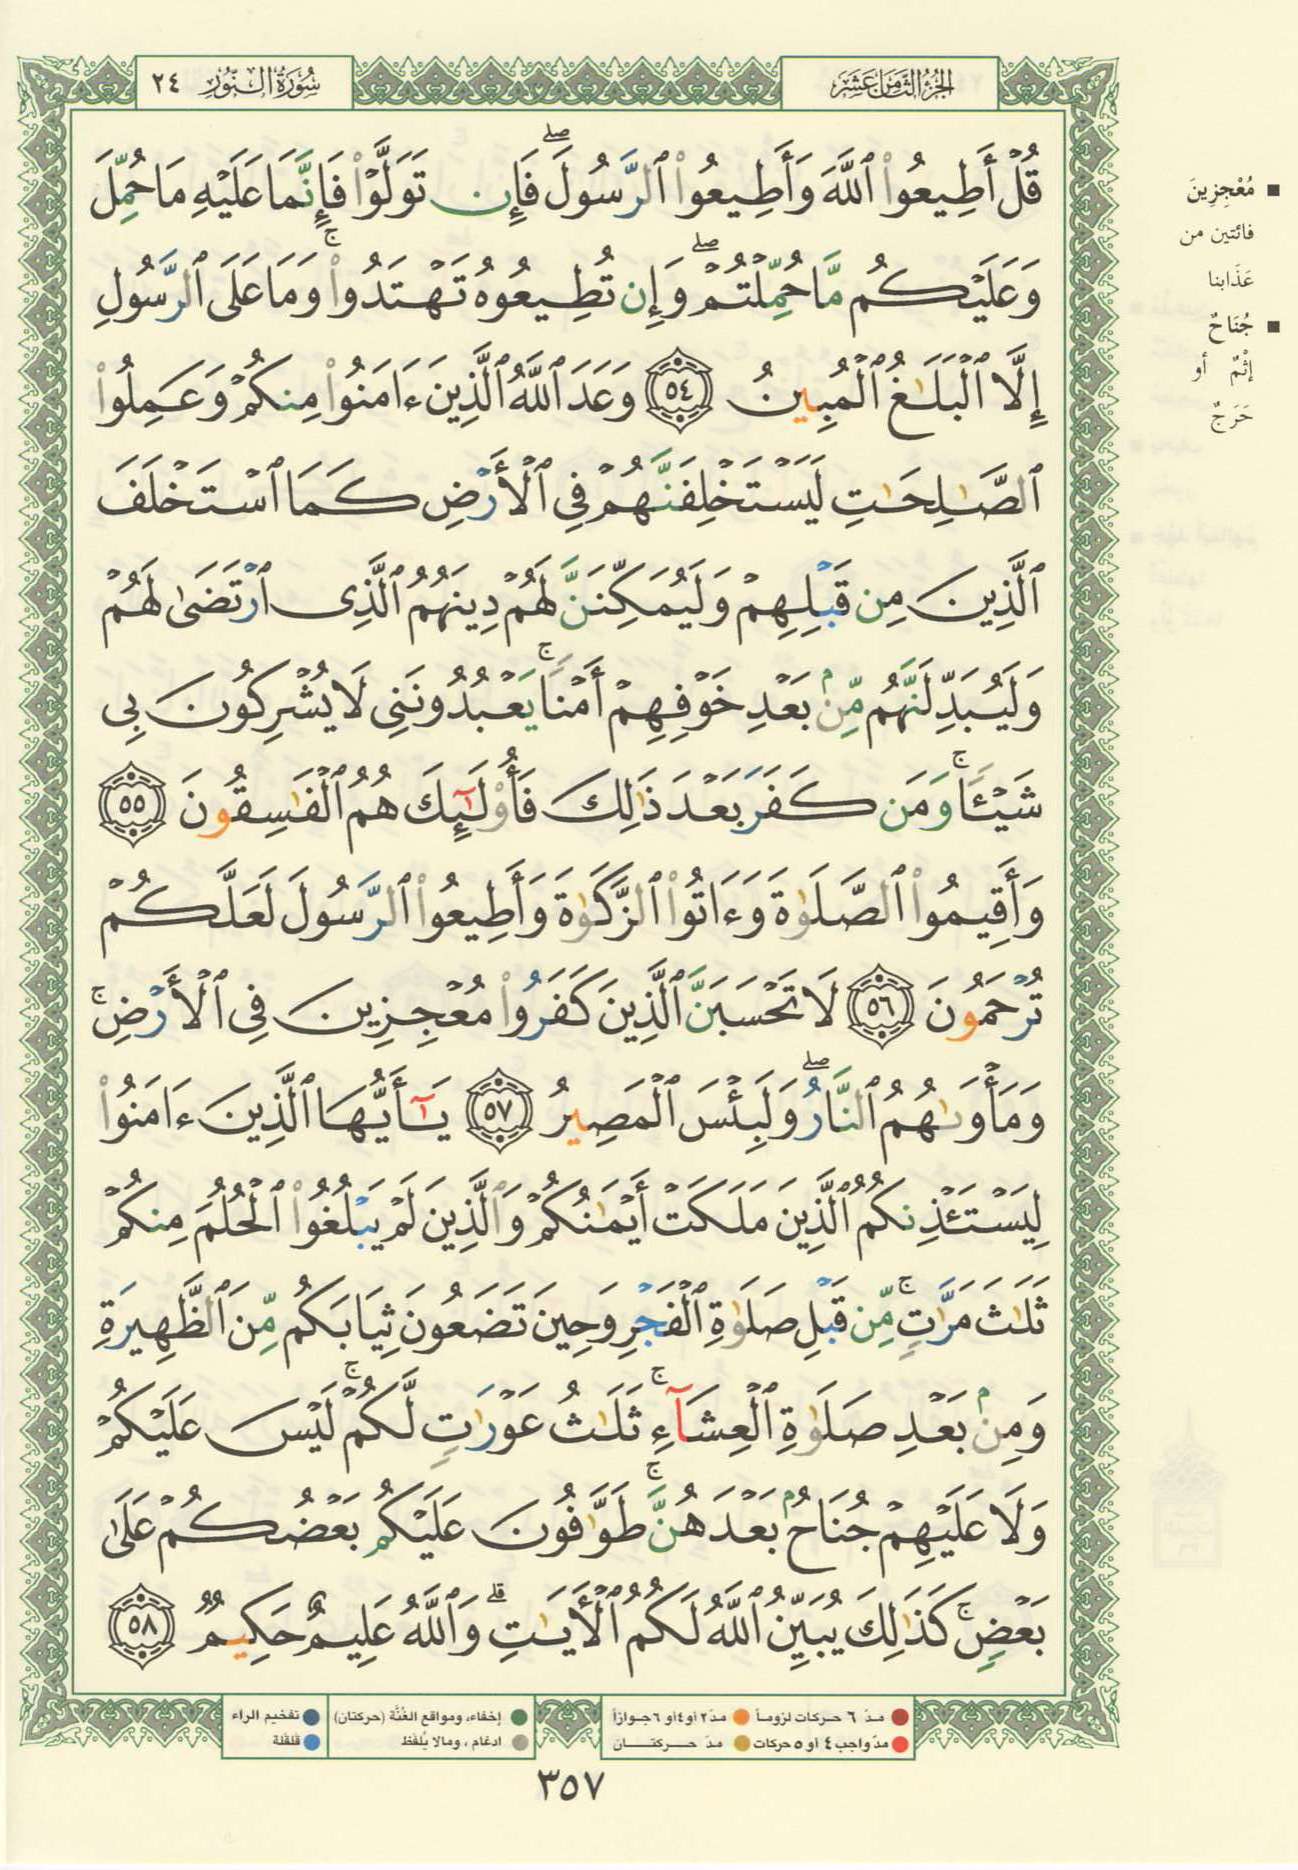 الجزء الثامن عشر
سورة النور ٢٤
قُلْ أَطِيعُوا۟ ٱللَّهَ وَأَطِيعُوا۟ ٱلرَّسُولَ ۖ فَإِن تَوَلَّوْا۟ فَإِنَّمَا عَلَيْهِ مَا حُمِّلَ
وَعَلَيْكُم مَّا حُمِّلْتُمْ ۖ وَإِن تُطِيعُوهُ تَهْتَدُوا۟ ۚ وَمَا عَلَى ٱلرَّسُولِ
إِلَّا ٱلْبَلَـٰغُ ٱلْمُبِينُ ٥٤ وَعَدَ ٱللَّهُ ٱلَّذِينَ ءَامَنُوا۟ مِنكُمْ وَعَمِلُوا۟
ٱلصَّـٰلِحَـٰتِ لَيَسْتَخْلِفَنَّهُمْ فِى ٱلْأَرْضِ كَمَا ٱسْتَخْلَفَ
ٱلَّذِينَ مِن قَبْلِهِمْ وَلَيُمَكِّنَنَّ لَهُمْ دِينَهُمُ ٱلَّذِى ٱرْتَضَىٰ لَهُمْ
وَلَيُبَدِّلَنَّهُم مِّنۢ بَعْدِ خَوْفِهِمْ أَمْنًا ۚ يَعْبُدُونَنِى لَا يُشْرِكُونَ بِى
شَيْـًٔا ۚ وَمَن كَفَرَ بَعْدَ ذَٰلِكَ فَأُو۟لَـٰٓئِكَ هُمُ ٱلْفَـٰسِقُونَ ٥٥
وَأَقِيمُوا۟ ٱلصَّلَوٰةَ وَءَاتُوا۟ ٱلزَّكَوٰةَ وَأَطِيعُوا۟ ٱلرَّسُولَ لَعَلَّكُمْ
تُرْحَمُونَ ٥٦ لَا تَحْسَبَنَّ ٱلَّذِينَ كَفَرُوا۟ مُعْجِزِينَ فِى ٱلْأَرْضِ ۚ
وَمَأْوَىٰهُمُ ٱلنَّارُ ۖ وَلَبِئْسَ ٱلْمَصِيرُ ٥٧ يَـٰٓأَيُّهَا ٱلَّذِينَ ءَامَنُوا۟
لِيَسْتَـْٔذِنكُمُ ٱلَّذِينَ مَلَكَتْ أَيْمَـٰنُكُمْ وَٱلَّذِينَ لَمْ يَبْلُغُوا۟ ٱلْحُلُمَ مِنكُمْ
ثَلَـٰثَ مَرَّٰتٍ ۚ مِّن قَبْلِ صَلَوٰةِ ٱلْفَجْرِ وَحِينَ تَضَعُونَ ثِيَابَكُم مِّنَ ٱلظَّهِيرَةِ
وَمِنۢ بَعْدِ صَلَوٰةِ ٱلْعِشَآءِ ۚ ثَلَـٰثُ عَوْرَٰتٍ لَّكُمْ ۚ لَيْسَ عَلَيْكُمْ
وَلَا عَلَيْهِمْ جُنَاحٌۢ بَعْدَهُنَّ ۚ طَوَّٰفُونَ عَلَيْكُم بَعْضُكُمْ عَلَىٰ
بَعْضٍ ۚ كَذَٰلِكَ يُبَيِّنُ ٱللَّهُ لَكُمُ ٱلْـَٔايَـٰتِ ۗ وَٱللَّهُ عَلِيمٌ حَكِيمٌ ٥٨
■ مُعْجِزِينَ
فائتين من
عَذَابنا
■ جُنَاحٌ
إثْمٌ أو
حَرَجٌ
مدّ ٦ حركات لزوماً
مدّ ٢ أو ٤ أو ٦ جوازاً
إخفاء، ومواقع الغُنَّة (حركتان)
تفخيم الراء
مدّ واجب ٤ أو ٥ حركات
مدّ حركتان
ادغام ، ومالا يُلفَظ
قلقلة
٣٥٧